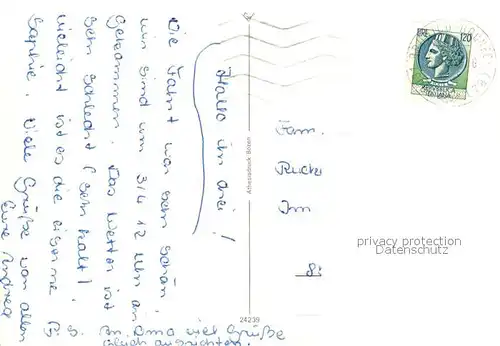 Hallo ihr drei!
Die Fahrt war sehr schön
wir sind um 3/4 12 Uhr an
Gekommen. Das Wetter ist
sehr schlecht (sehr kalt)!
vielleicht ist es die eiserne
Sophie. Viele Grüße von allen
Eure Andrea
P.S. Oma viel Grüße
gleich ausrichten.
Athesiadruck Bozen
24239
LIRE 120
Fam.
Im
8
privacy protection
Datenschutz